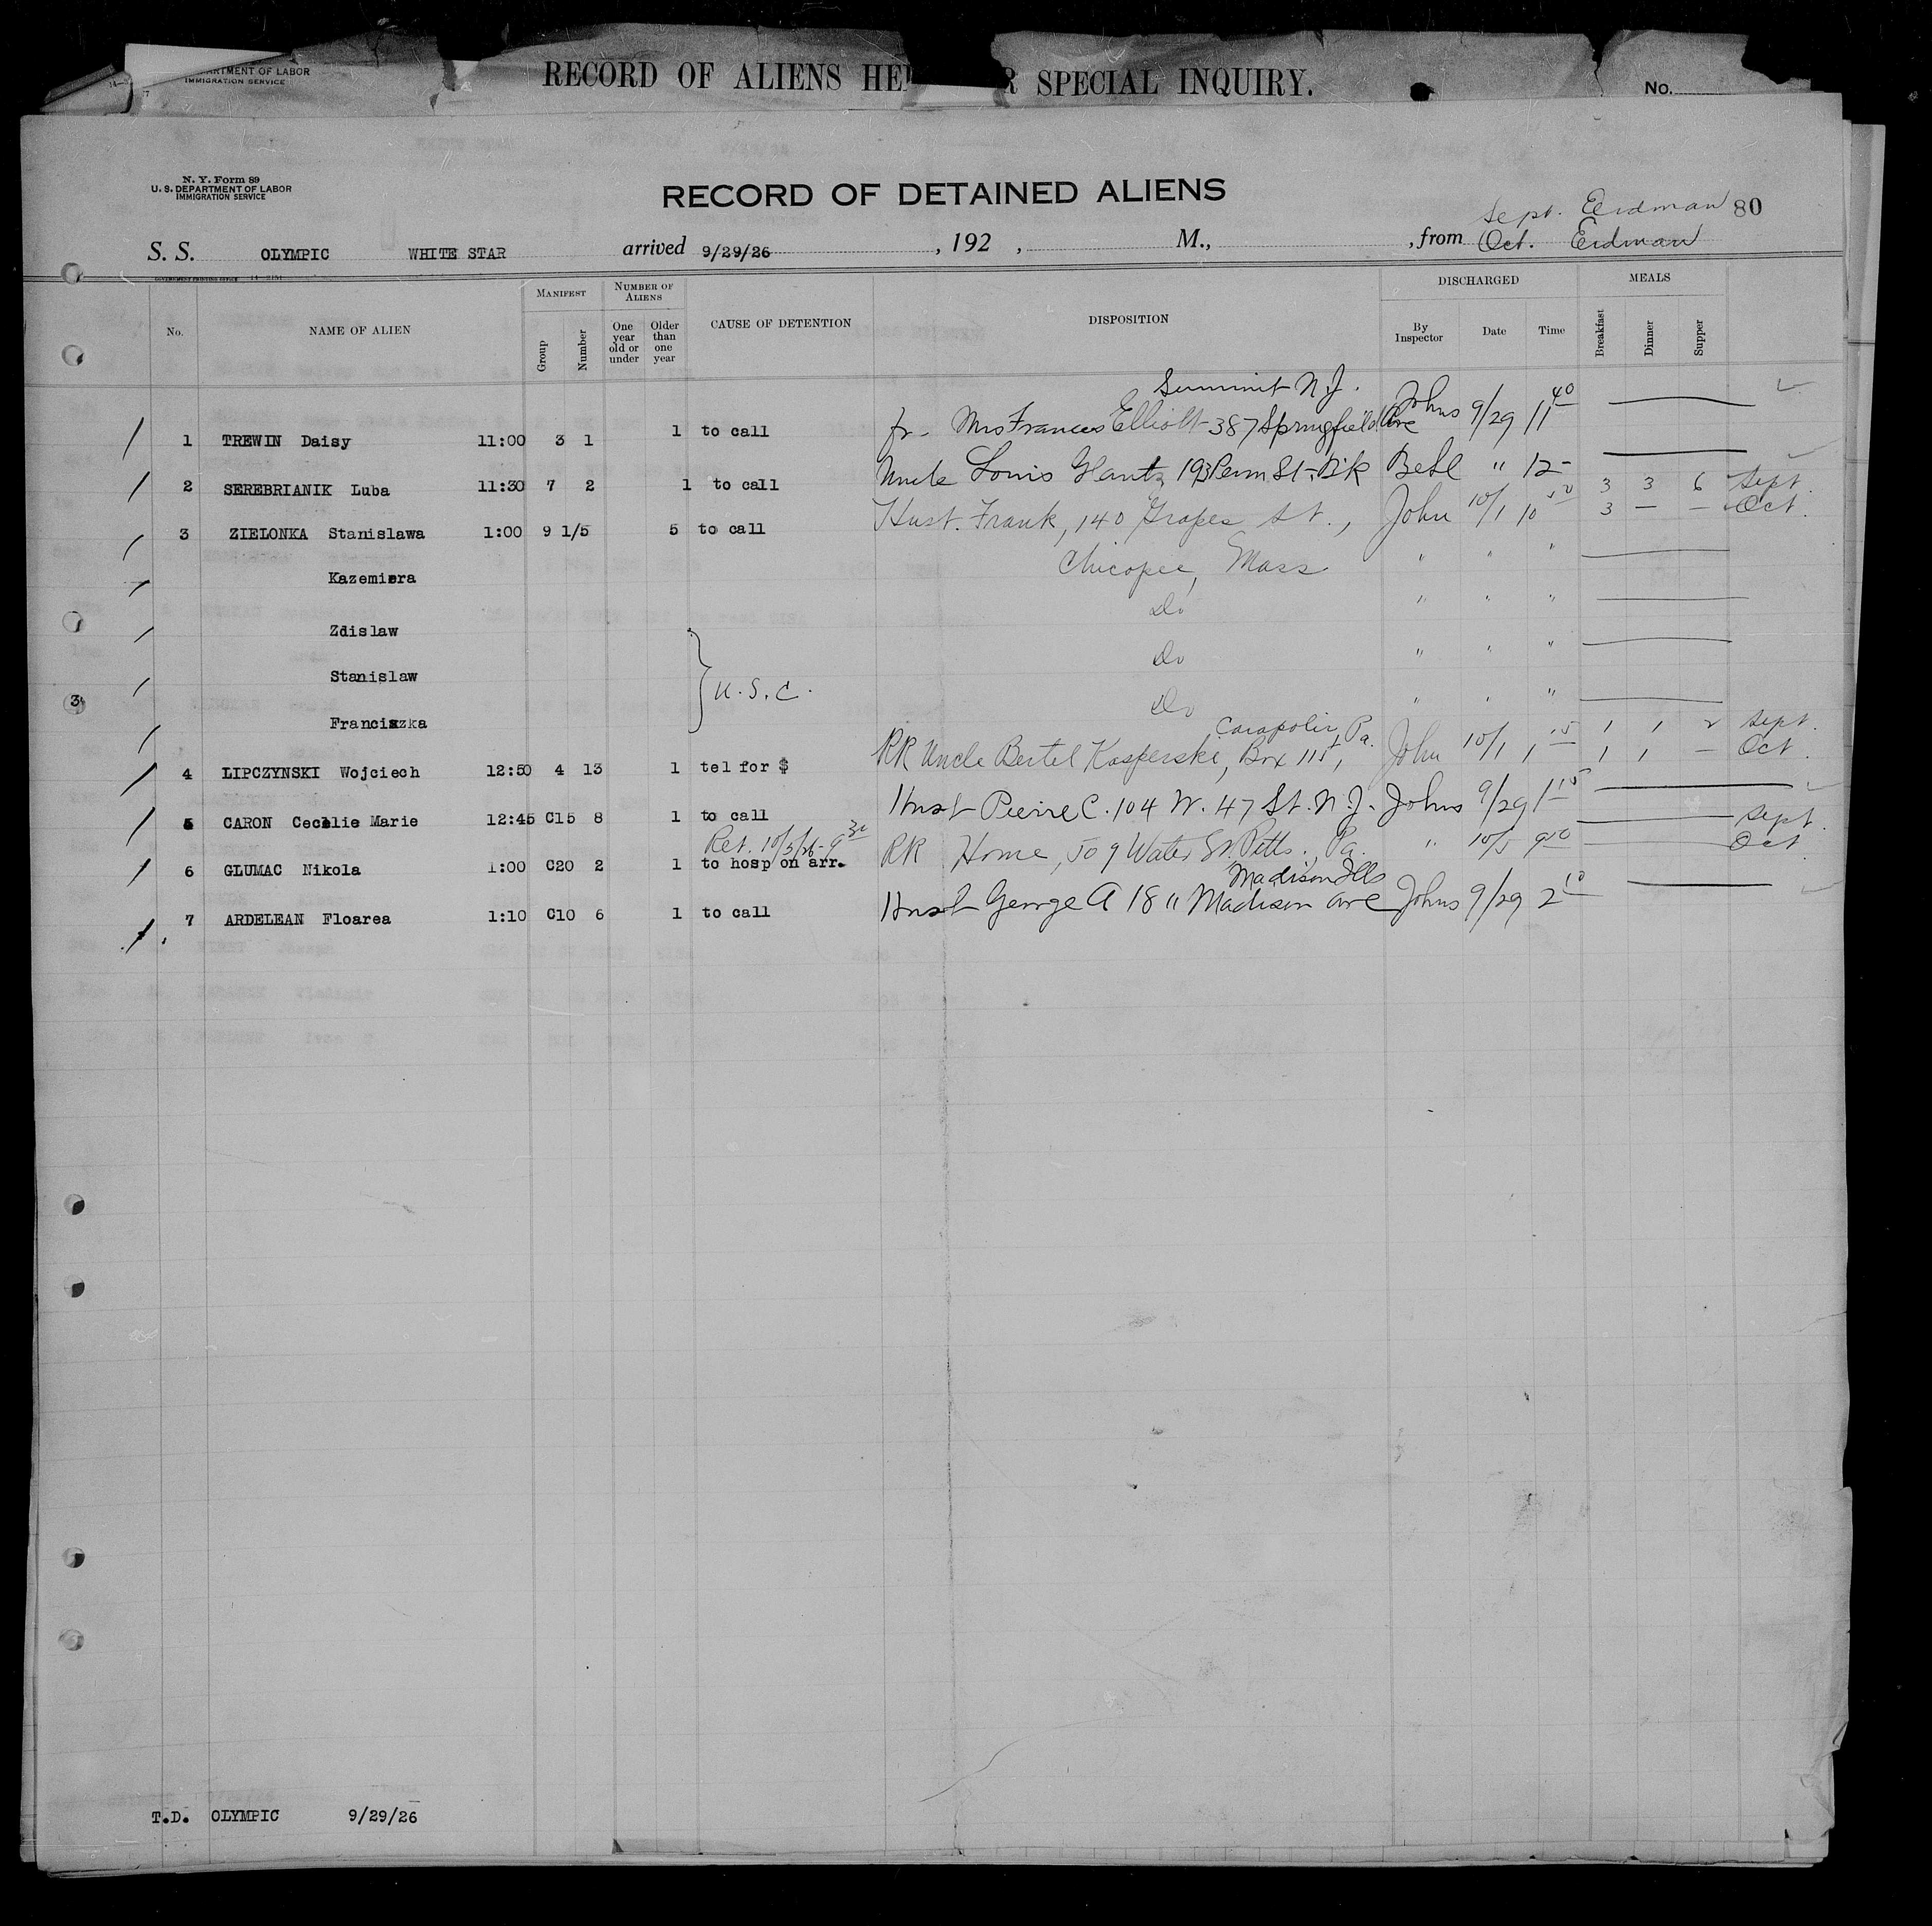 ARTMENT OF LABOR
IMMIGRATION SERVICE
RECORD OF ALIENS HE R SPECIAL INQUIRY.
No.
N. Y. Form 89
U. S. DEPARTMENT OF LABOR
IMMIGRATION SERVICE
RECORD OF DETAINED ALIENS
Sept. Erdman 80
S. S. OLYMPIC WHITE STAR arrived 9/29/26 , 192 , M., , from Oct. Erdman
No. NAME OF ALIEN MANIFEST Group Number NUMBER OF ALIENS One year old or under Older than one year CAUSE OF DETENTION DISPOSITION DISCHARGED By Inspector Date Time MEALS Breakfast Dinner Supper
Summit N.J.
1 TREWIN Daisy 11:00 3 1 1 to call fr. Mrs Frances Elliott 387 Springfield Ave Johns 9/29 11 40
2 SEREBRIANIK Luba 11:30 7 2 1 to call Uncle Louis Glantz 193 Penn St. Bk " 12-
3 3 6 Sept.
3 ZIELONKA Stanislawa 1:00 9 1/5 5 to call Hust. Frank, 140 Grapes St., John 10/1 10 50 3 — — Oct.
Kazemiera Chicopee, Mass. " " "
Zdislaw Do " " "
Stanislaw Do " " "
U. S. C.
Franciszka Do " " "
Corapolis, Pa. 1 1 2 Sept
4 LIPCZYNSKI Wojciech 12:50 4 13 1 tel for $ RR Uncle Bertel Kasperski, Box 115, John 10/1 1 15 1 1 — Oct.
5 CARON Cecelie Marie 12:45 C15 8 1 to call Hust Pierre C. 104 W. 47 St. N.Y. Johns 9/29 1 15
Ret. 10/5/26 - 9 30 Sept.
6 GLUMAC Nikola 1:00 C20 2 1 to hosp on arr. RR Home, 509 Water St. Pitts., Pa. " 10/5 9 50 Oct
Madison Ills
7 ARDELEAN Floarea 1:10 C10 6 1 to call Hust George A 18 " Madison Ave Johns 9/29 2 10
3
T.D. OLYMPIC 9/29/26